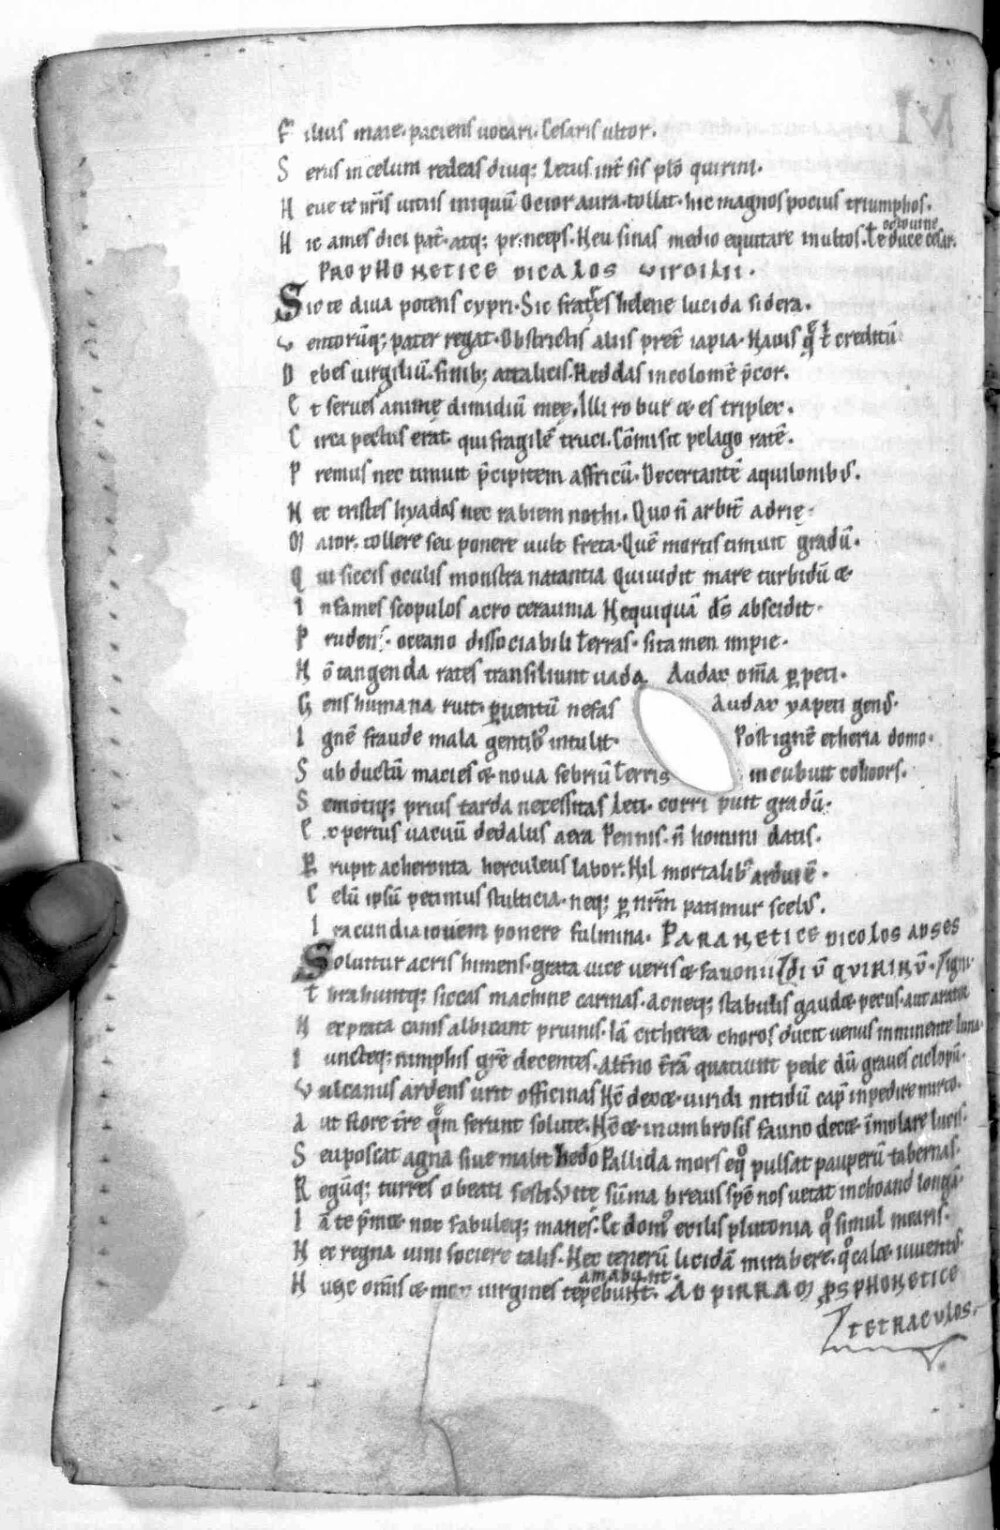 F ilius maie. paciens uocari. Cesaris ultor.
S erus in celum redeas diuq; Letus int̄ sis pl̄o quirini.
N eue te nr̄is uitiis iniquū Ocior aura. tollat. hic magnos pocius triumphos.
H ic ames dici pat̄. atq; princeps. Neu sinas medio equitare inultos. Te duce cesar.
PROPHONETICE DICALOS VIRGILII.
Sic te diua potens cypri. Sic fratres helene lucida sidera.
V entorūq; pater regat. Obstrictis aliis pret̄ iapia. Nauis q̄ t̄ creditū
D ebes uirgiliū. finib; atticis. Reddas incolomē p̄cor.
E t serues animę dimidiū meę. Illi robur & es triplex.
C irca pectus erat. qui fragilē truci. Cōmisit pelago ratē.
P rimus nec timuit p̄cipitem affricū. Decertantē aquilonib;.
N ec tristes hyadas nec rabiem nothi. Quo n̄ arbit̄ adrię.
M aior. tollere seu ponere uult freta. Quē mortis timuit gradū.
Q ui siccis oculis monstra natantia Qui uidit mare turbidū &
I nfames scopulos acro cerauma Nequiquā ds̄ abscidit.
P rudens. oceano dissociabili terras. si tamen impie.
N ō tangenda rates transiliunt uada Audax om̄a ꝑpeti.
G ens humana ruit. ꝑ uentū nefas Audax yapeti gens.
I gnē fraude mala gentib; intulit. Post ignē etheria domo.
S ub ductū macies & noua febriū terris incubuit cohors.
S emotiq; prius tarda necessitas Leti. corri puit gradū.
E xpertus uacuū dedalus aera Pennis. n̄ homini datis.
P rupit acheronta herculeus labor. Nil mortalib; arduū ē.
C elū ipsū petimus stulticia. neq; ꝑ nr̄m patimur scelus.
I racundia iouem ponere fulmina. PARANETICE DICOLOS AD SES
Soluitur acris hiems. grata uice ueris & fauonii TIŪ QVIRINŪ.
T rahuntq; siccas machine carinas. Ac neq; stabulis gaud& pecus. aut arator
N ec prata canis albicant pruinis. Iā citherea choros ducit uenus inminente luna.
I uncteq; nimphis gr̄e decentes. Alt̄no t̄rā quatiunt pede dū graues ciclopū.
V ulcanus ardens urit officinas Nc̄ dec& uiridi nitidū cap̄ inpedire mirto.
A ut flore t̄re q̄m ferunt solute. Nc̄ & in umbrosis fauno dec& īmolare lucis.
S eu poscat agna siue malit hedo Pallida mors eq̊ pulsat pauperū tabernas.
R egūq; turres o beati sesti Vitę sūma breuis spē nos uetat inchoare longā.
I ā te p̄m& nox fabuleq; manes. Et dom; exilis plutonia q̊ simul mearis.
N ec regna uini sociere talis. Nec tenerū lucidā mirabere. q̊ cal& iuuentus.
N unc om̄is & mox uirgines tepebunt. AD PIRRAM PSPHONETICE
amabunt.
TETRACVLOS.